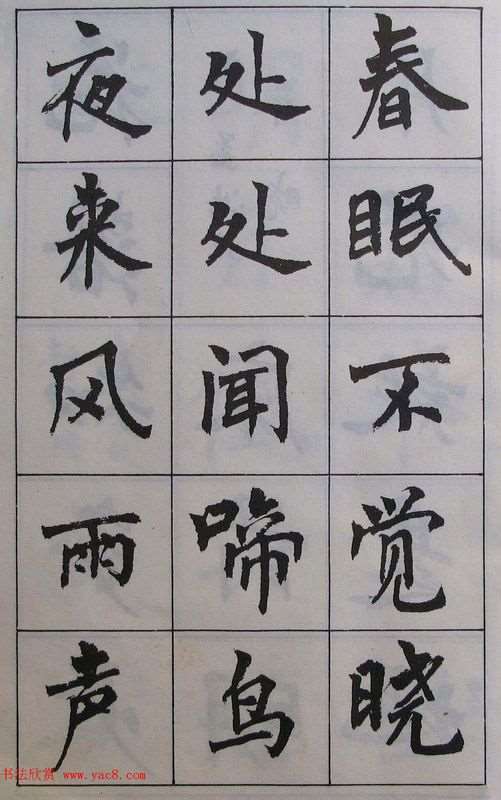 春眠不觉晓
处处闻啼鸟
夜来风雨声
书法欣赏 www.yac8.com